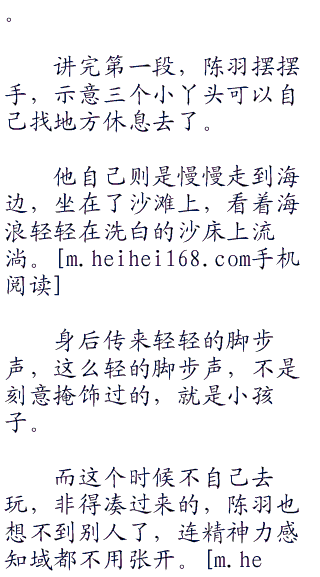 。
讲完第一段，陈羽摆摆
手，示意三个小丫头可以自
己找地方休息去了。
他自己则是慢慢走到海
边，坐在了沙滩上，看着海
浪轻轻在洗白的沙床上流
淌。[m.heihei168.com手机
阅读]
身后传来轻轻的脚步
声，这么轻的脚步声，不是
刻意掩饰过的，就是小孩
子。
而这个时候不自己去
玩，非得凑过来的，陈羽也
想不到别人了，连精神力感
知域都不用张开。[m.he